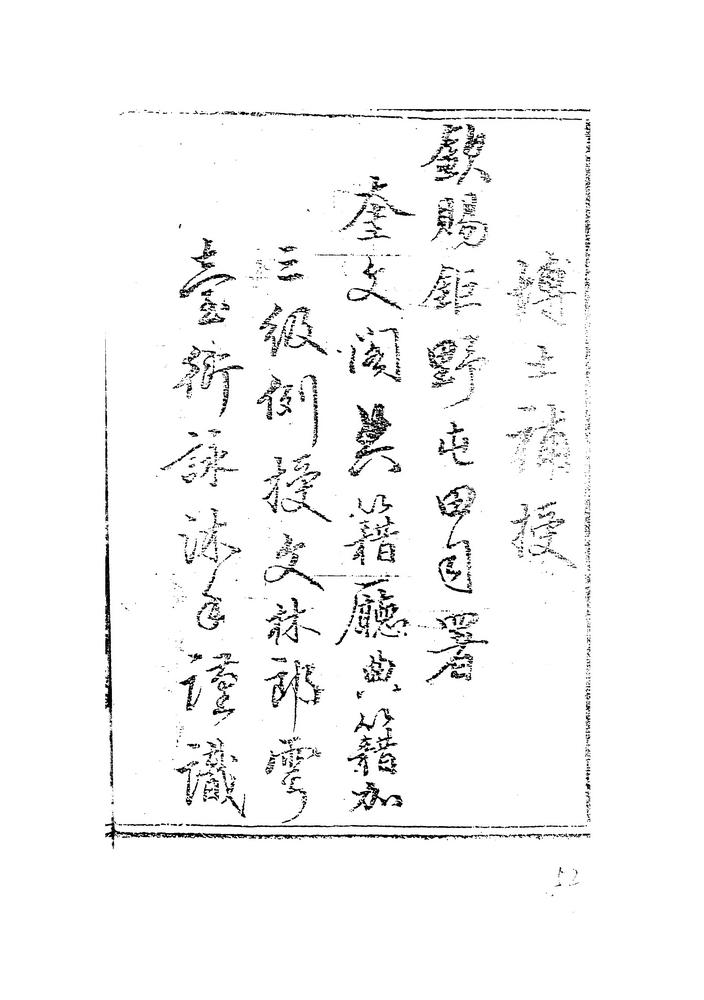 博士補授
欽賜鉅野屯田司署
奎文閣典籍廳典籍加
三級例授文林郎雩
臺衛詠沐手謹識
52